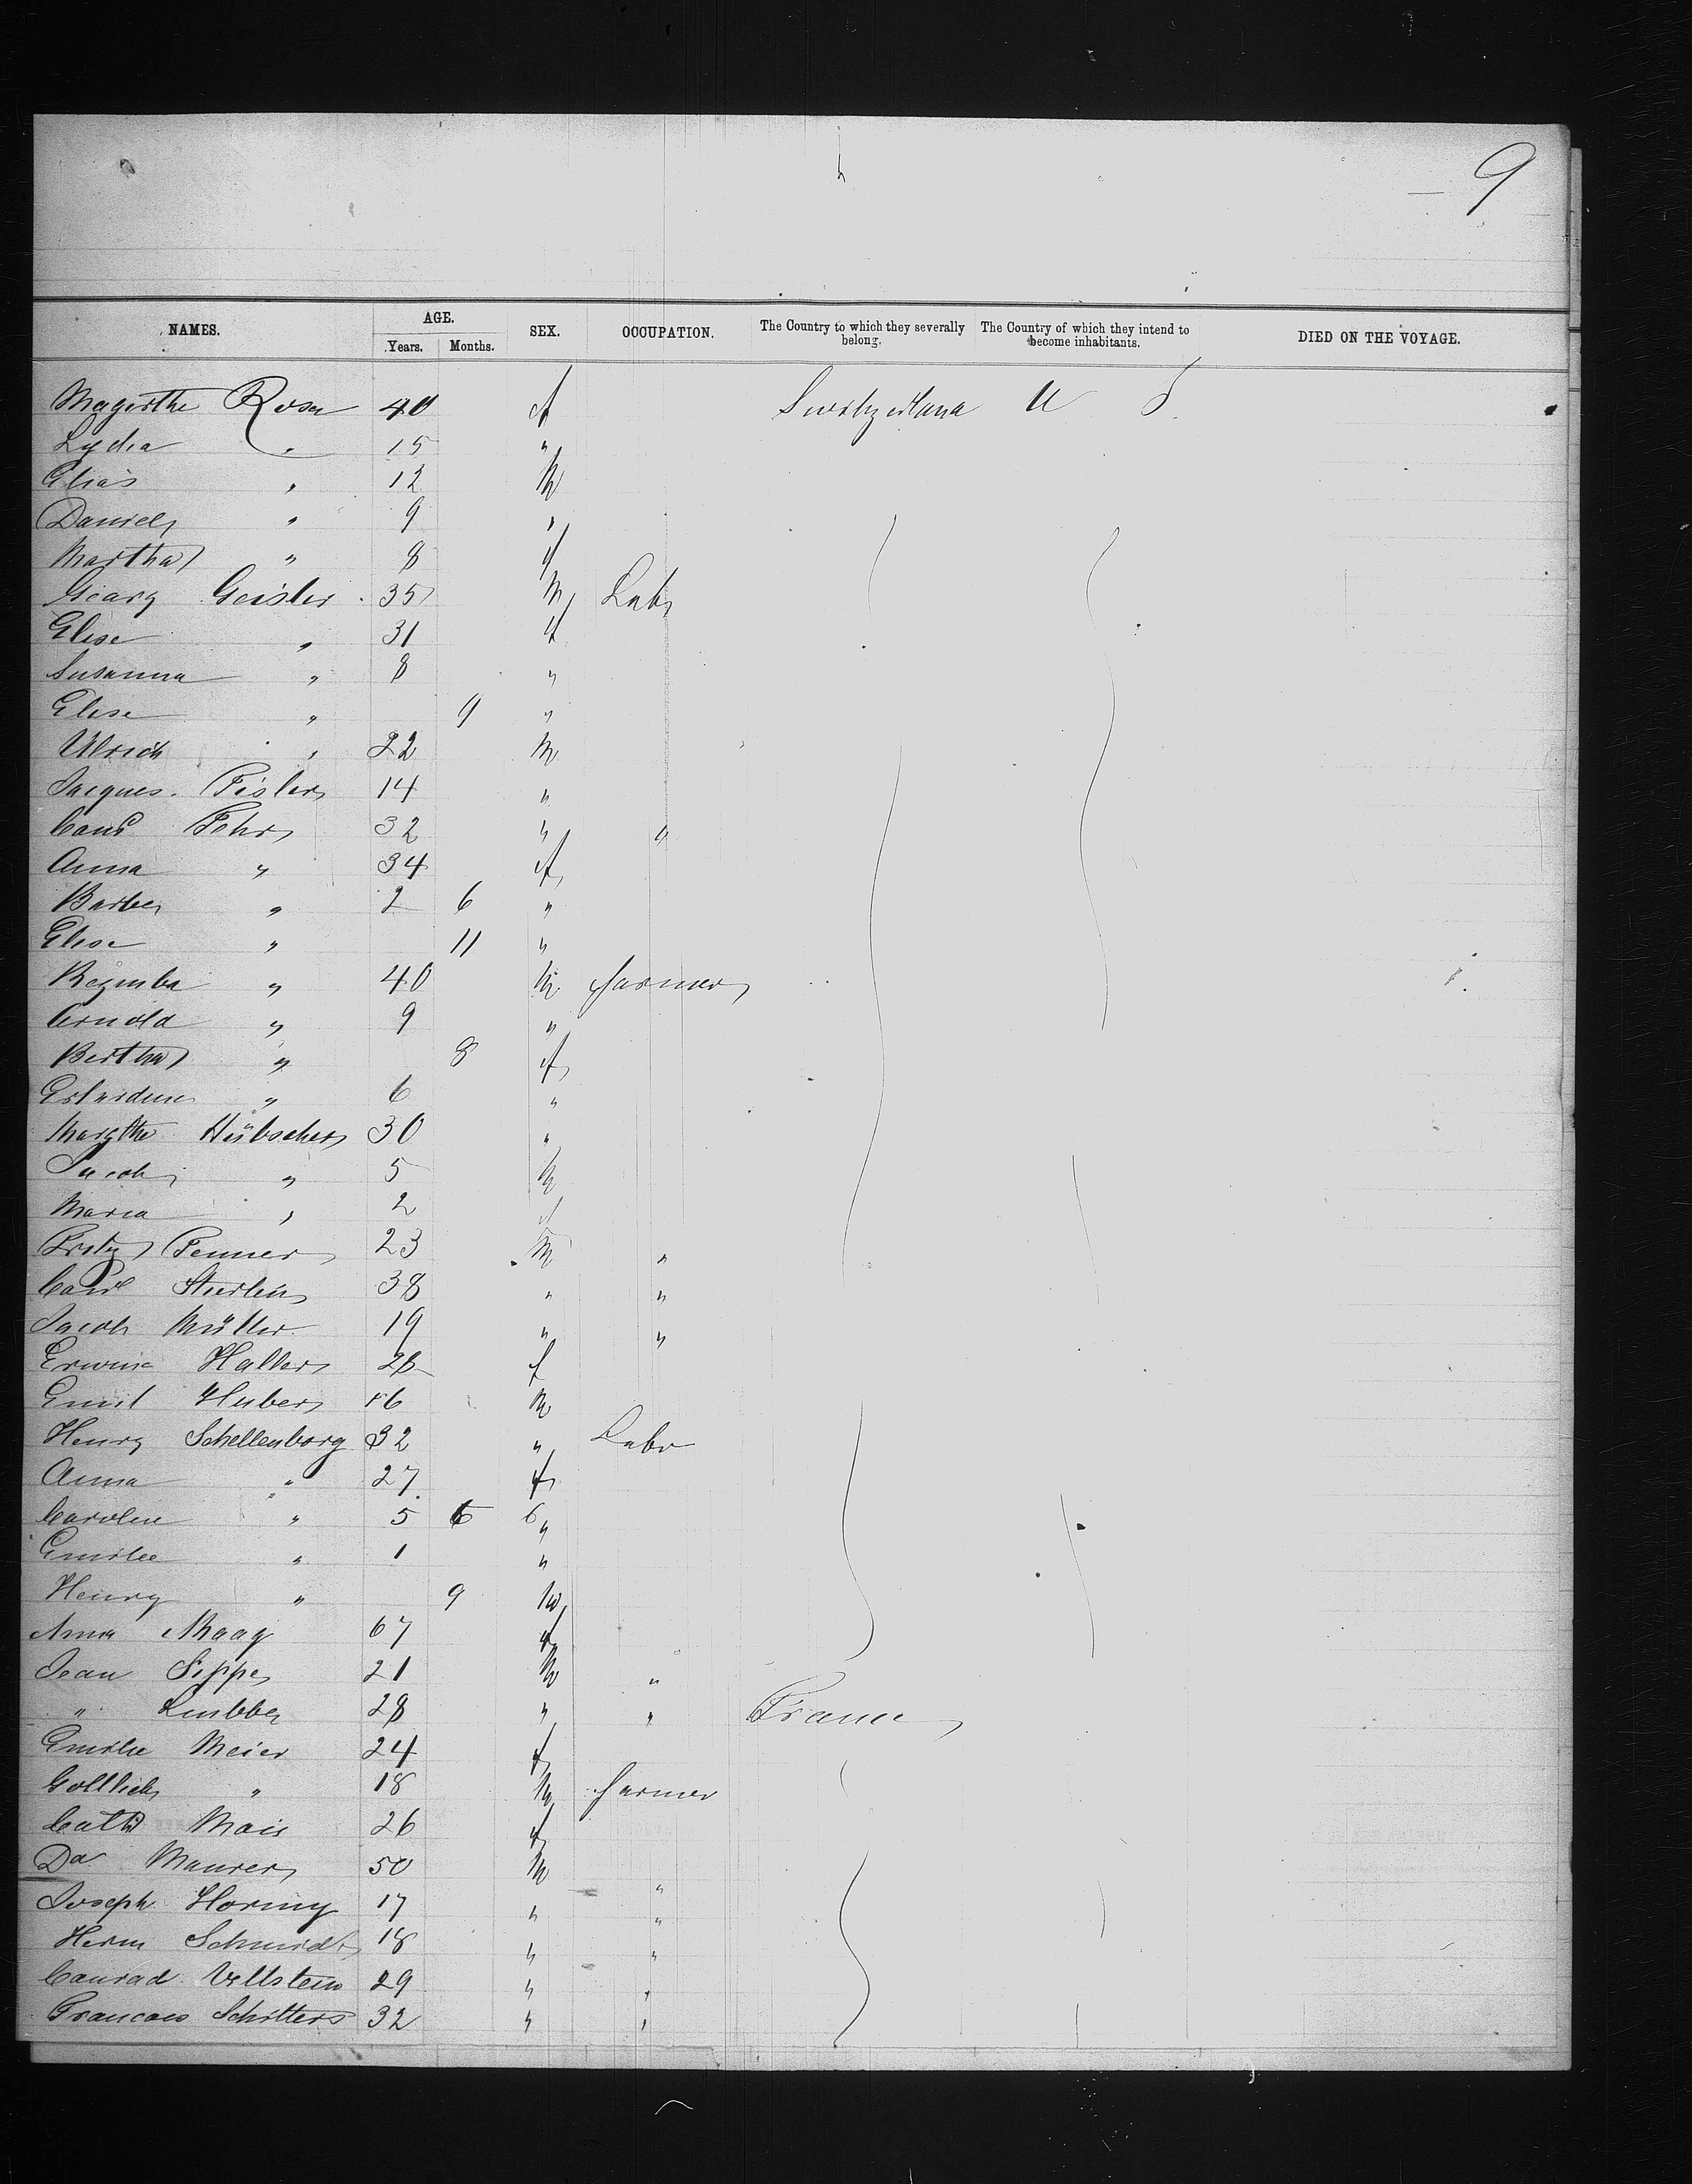 9
NAMES. AGE. SEX. OCCUPATION. The Country to which they severally belong. The Country of which they intend to become inhabitants. DIED ON THE VOYAGE.
Years. Months.
Magerthe Rosa 40 f Switzerland U S.
Lydia " 15 "
Elias " 12 M
Daniel " 9 "
Martha " 8 f
Georg Geisler 35 M Labr
Elise " 31 f
Susanna " 8 "
Elise " 9 "
Ulrich " 22 M
Jacques Fisler 14 "
Fehr 32 " "
Anna " 34 f
Barbe " 2 6 "
Elise " 11 "
" 40 M farmer
Arnold " 9 "
Bertha " 8 f
" 6 "
Margthe Hübscher 30 "
Jacob " 5 M
Maria " 2 f
Fenner 23 M "
Carl 38 " "
Jacob Müller 19 " "
Erwina Haller 26 f
Emil Huber 16 M
Henry Schellenborg 32 " Labr
Anna " 27 f
Caroline " 5 6 6 "
Emilie " 1 "
Henry " 9 M
Anna Maag 67 f
Jean 21 M "
" 28 " " France
Emilie Meier 24 f
Gottlieb " 18 M farmer
Cath Mais 26 f
Da Maurer 50 M "
Joseph Horny 17 " "
Herm Schmidt 18 " "
Conrad Vettstein 29 " "
Francois Schitters 32 " "